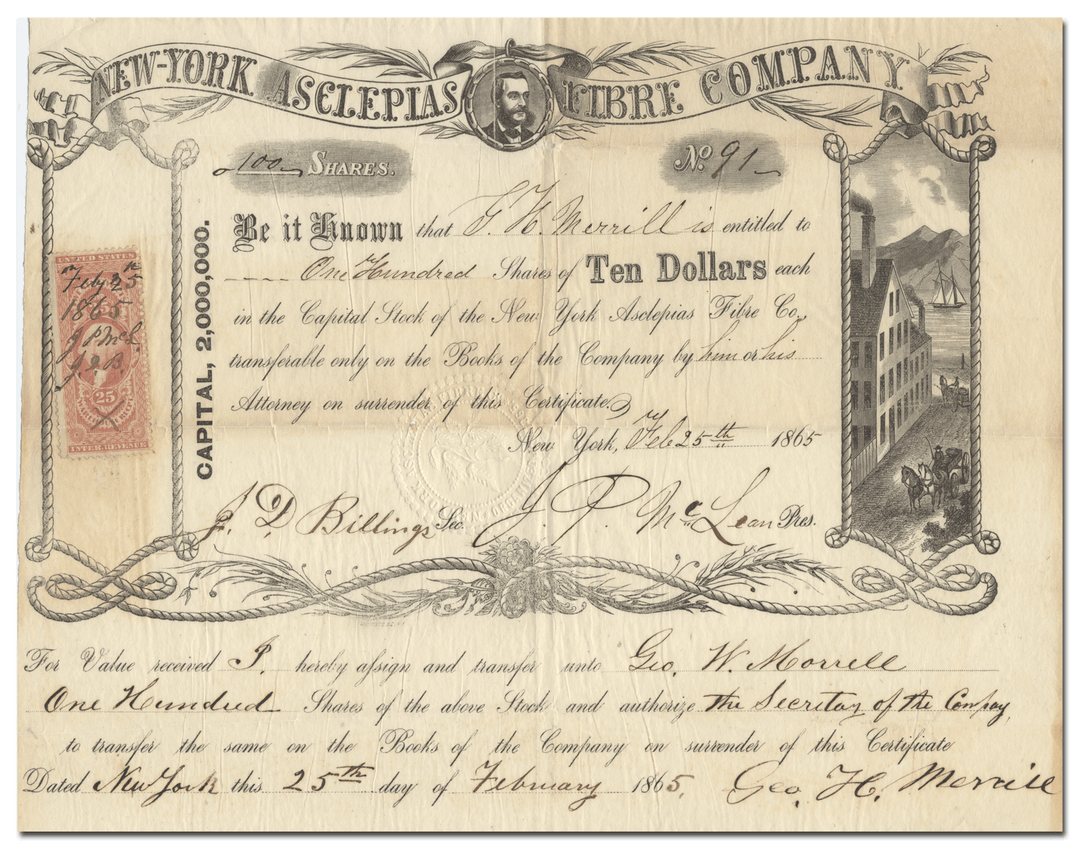 NEW-YORK ASCLEPIAS FIBRE COMPANY
100 SHARES.
No. 91
CAPITAL, 2,000,000.
Be it Known that G. H. Merrill is entitled to
One Hundred Shares of Ten Dollars each
in the Capital Stock of the New York Asclepias Fibre Co.
transferable only on the Books of the Company by him or his
Attorney on surrender of this Certificate.
New York, Feb 25th 1865
J. D. Billings Sec. J. P. McLean Pres.
UNITED STATES
Feby 25
1865
J P McL
J. D. B.
25
INTER. REVENUE
For Value received I. hereby assign and transfer unto Geo. W. Morrell
One Hundred Shares of the above Stock and authorize the Secretay of the Compay,
to transfer the same on the Books of the Company on surrender of this Certificate
Dated New York this 25th day of February 1865. Geo. H. Merrill